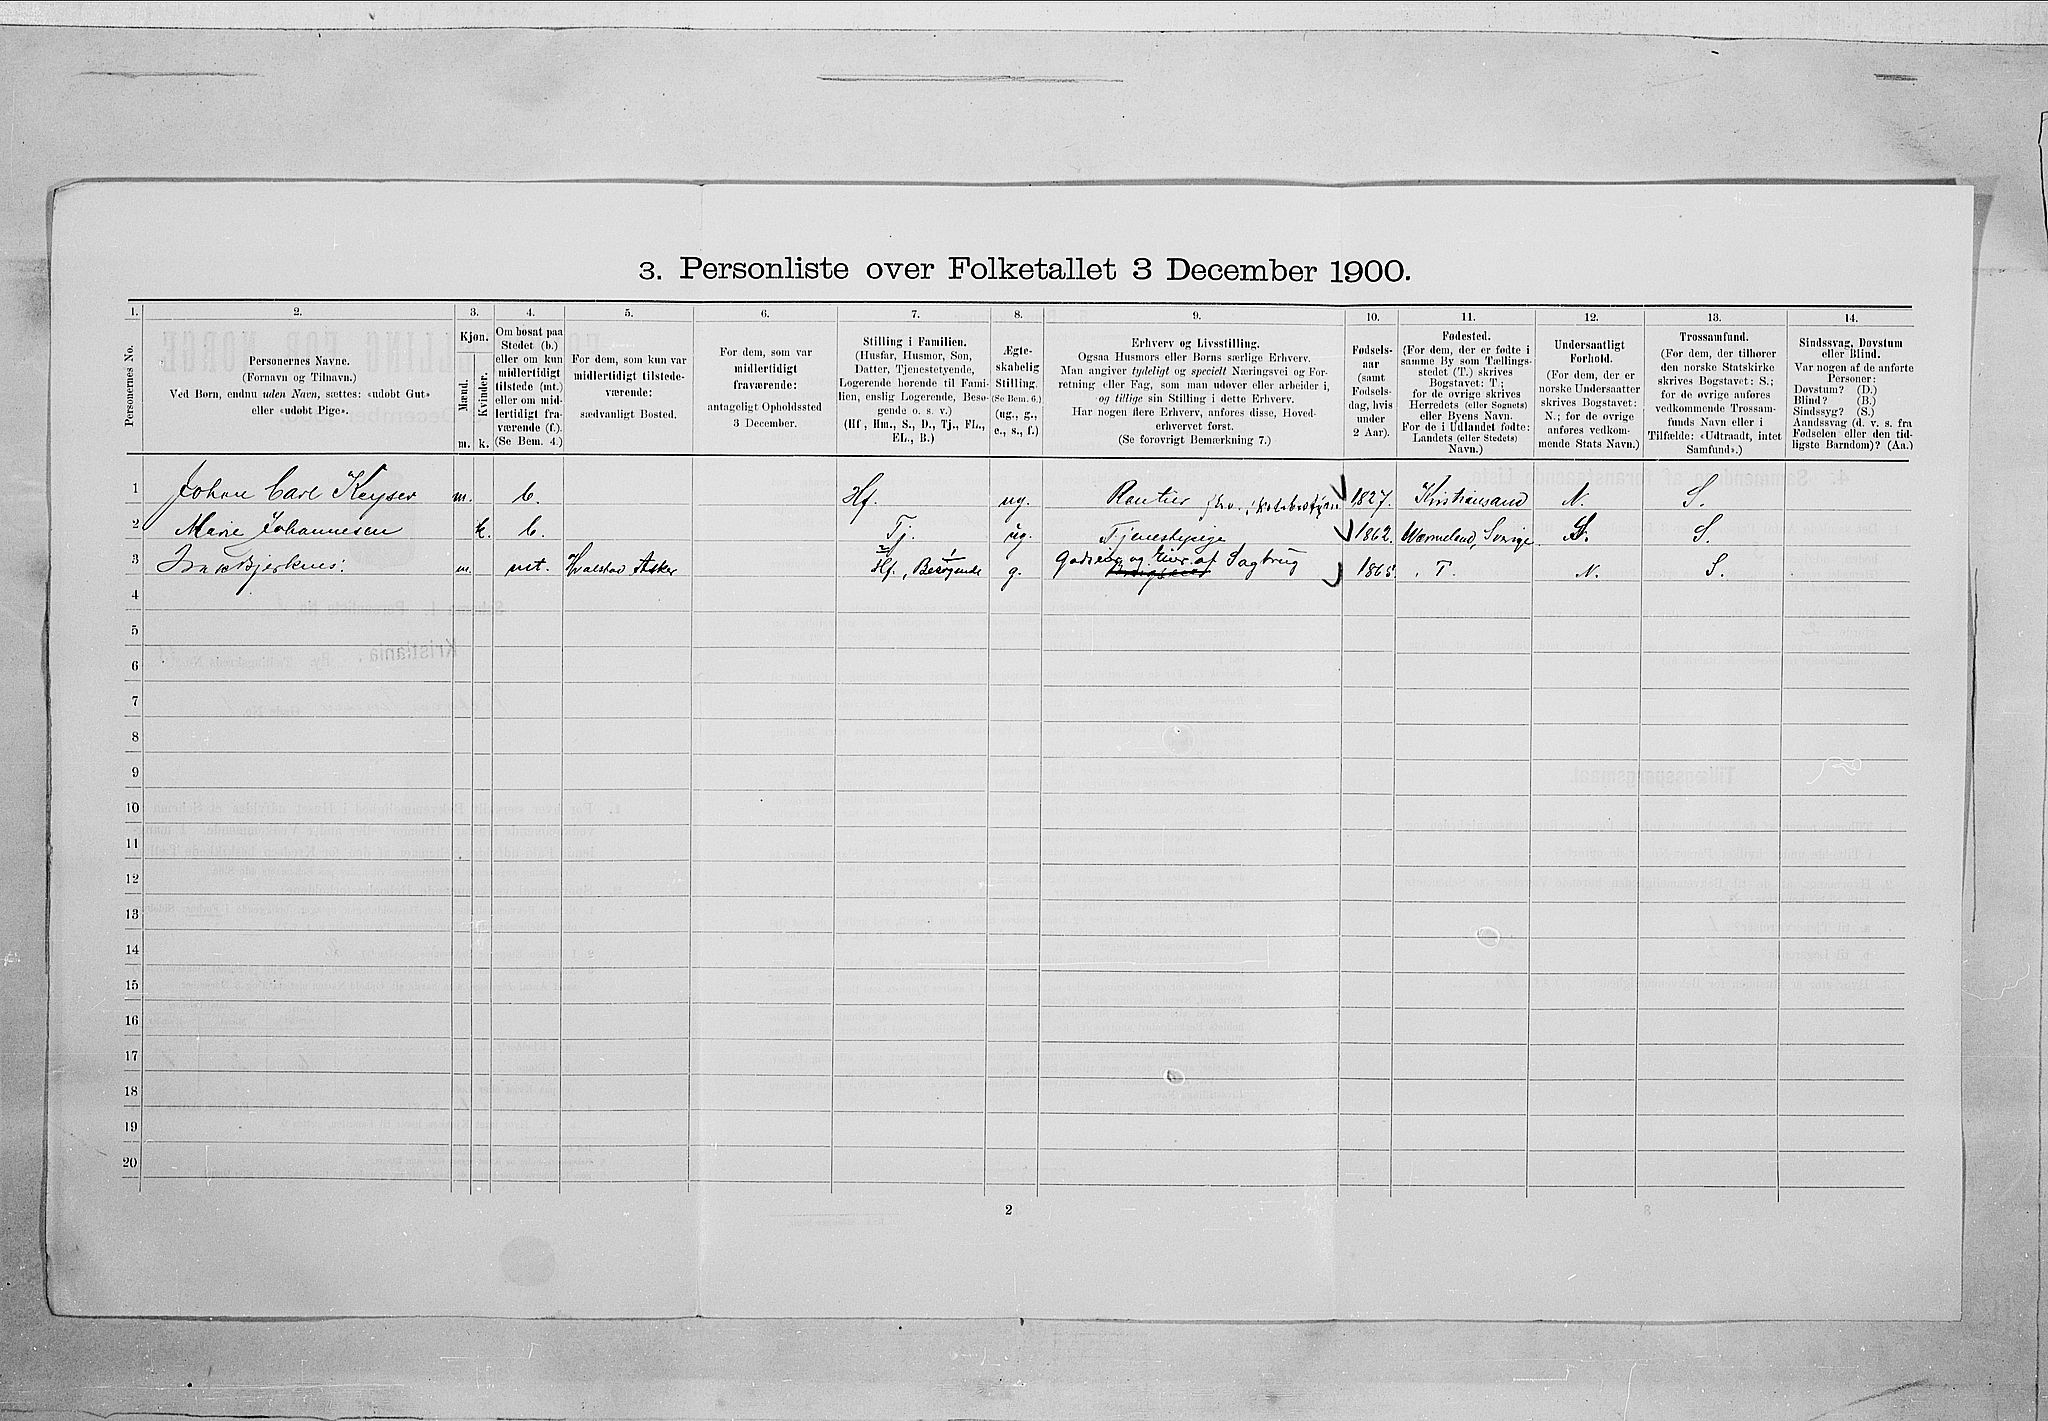 3. Personliste over Folketallet 3 December 1900.
1. 2. 3. 4. 5. 6. 7. 8. 9. 10. 11. 12. 13. 14.
Personernes No.
Personernes Navne.
(Fornavn og Tilnavn.)
Ved Børn, endnu uden Navn, sættes: «udøbt Gut»
eller «udøbt Pige».
Kjøn.
Mænd.
Kvinder.
m. k.
Om bosat paa
Stedet (b.)
eller om kun
midlertidigt
tilstede (mt.)
eller om mid-
lertidigt fra-
værende (f.).
(Se Bem. 4.)
For dem, som kun var
midlertidigt tilstede-
værende:
sædvanligt Bosted.
For dem, som var
midlertidigt
fraværende:
antageligt Opholdssted
3 December.
Stilling i Familien.
(Husfar, Husmor, Søn,
Datter, Tjenestetyende,
Logerende hørende til Fami-
lien, enslig Logerende, Besø-
gende o. s. v.)
(Hf., Hm., S., D., Tj., FL.,
EL., B.)
Ægte-
skabelig
Stilling.
(Se Bem. 6.)
(ug., g.,
e., s., f.)
Erhverv og Livsstilling.
Ogsaa Husmors eller Børns særlige Erhverv.
Man angiver tydeligt og specielt Næringsvei og For-
retning eller Fag, som man udøver eller arbeider i,
og tillige sin Stilling i dette Erhverv.
Har nogen flere Erhverv, anføres disse, Hoved-
erhvervet først.
(Se forøvrigt Bemærkning 7.)
Fødsels-
aar
(samt
Fødsels-
dag, hvis
under
2 Aar).
Fødested.
(For dem, der er fødte i
samme By som Tællings-
stedet (T.) skrives
Bogstavet: T.;
for de øvrige skrives
Herredets (eller Sognets)
eller Byens Navn.
For de i Udlandet fødte:
Landets (eller Stedets)
Navn.)
Undersaatligt
Forhold.
(For dem, der er
norske Undersaatter
skrives Bogstavet:
N.; for de øvrige
anføres vedkom-
mende Stats Navn.)
Trossamfund.
(For dem, der tilhører
den norske Statskirke
skrives Bogstavet: S.;
for de øvrige anføres
vedkommende Trossam-
funds Navn eller i
Tilfælde: «Udtraadt, intet
Samfund».)
Sindssvag, Døvstum
eller Blind.
Var nogen af de anførte
Personer:
Døvstum? (D.)
Blind? (B.)
Sindssyg? (S.)
Aandssvag (d. v. s. fra
Fødselen eller den tid-
ligste Barndom)? (Aa.)
1 Johan Carl Keyser m. b. Hf. ug. Rentier 1827. Kristiansand N. S.
2 Marie Johannesen k. b. Tj. ug. Tjenestepige 1862. Wærmeland, Sverige S. S.
3 Bjerknes. m. mt. Hvalstad Asker Hf., Besøgende g. Godseier og Eier af Sagbrug 1865. T. N. S.
4
5
6
7
8
9
10
11
12
13
14
15
16
17
18
19
20
2